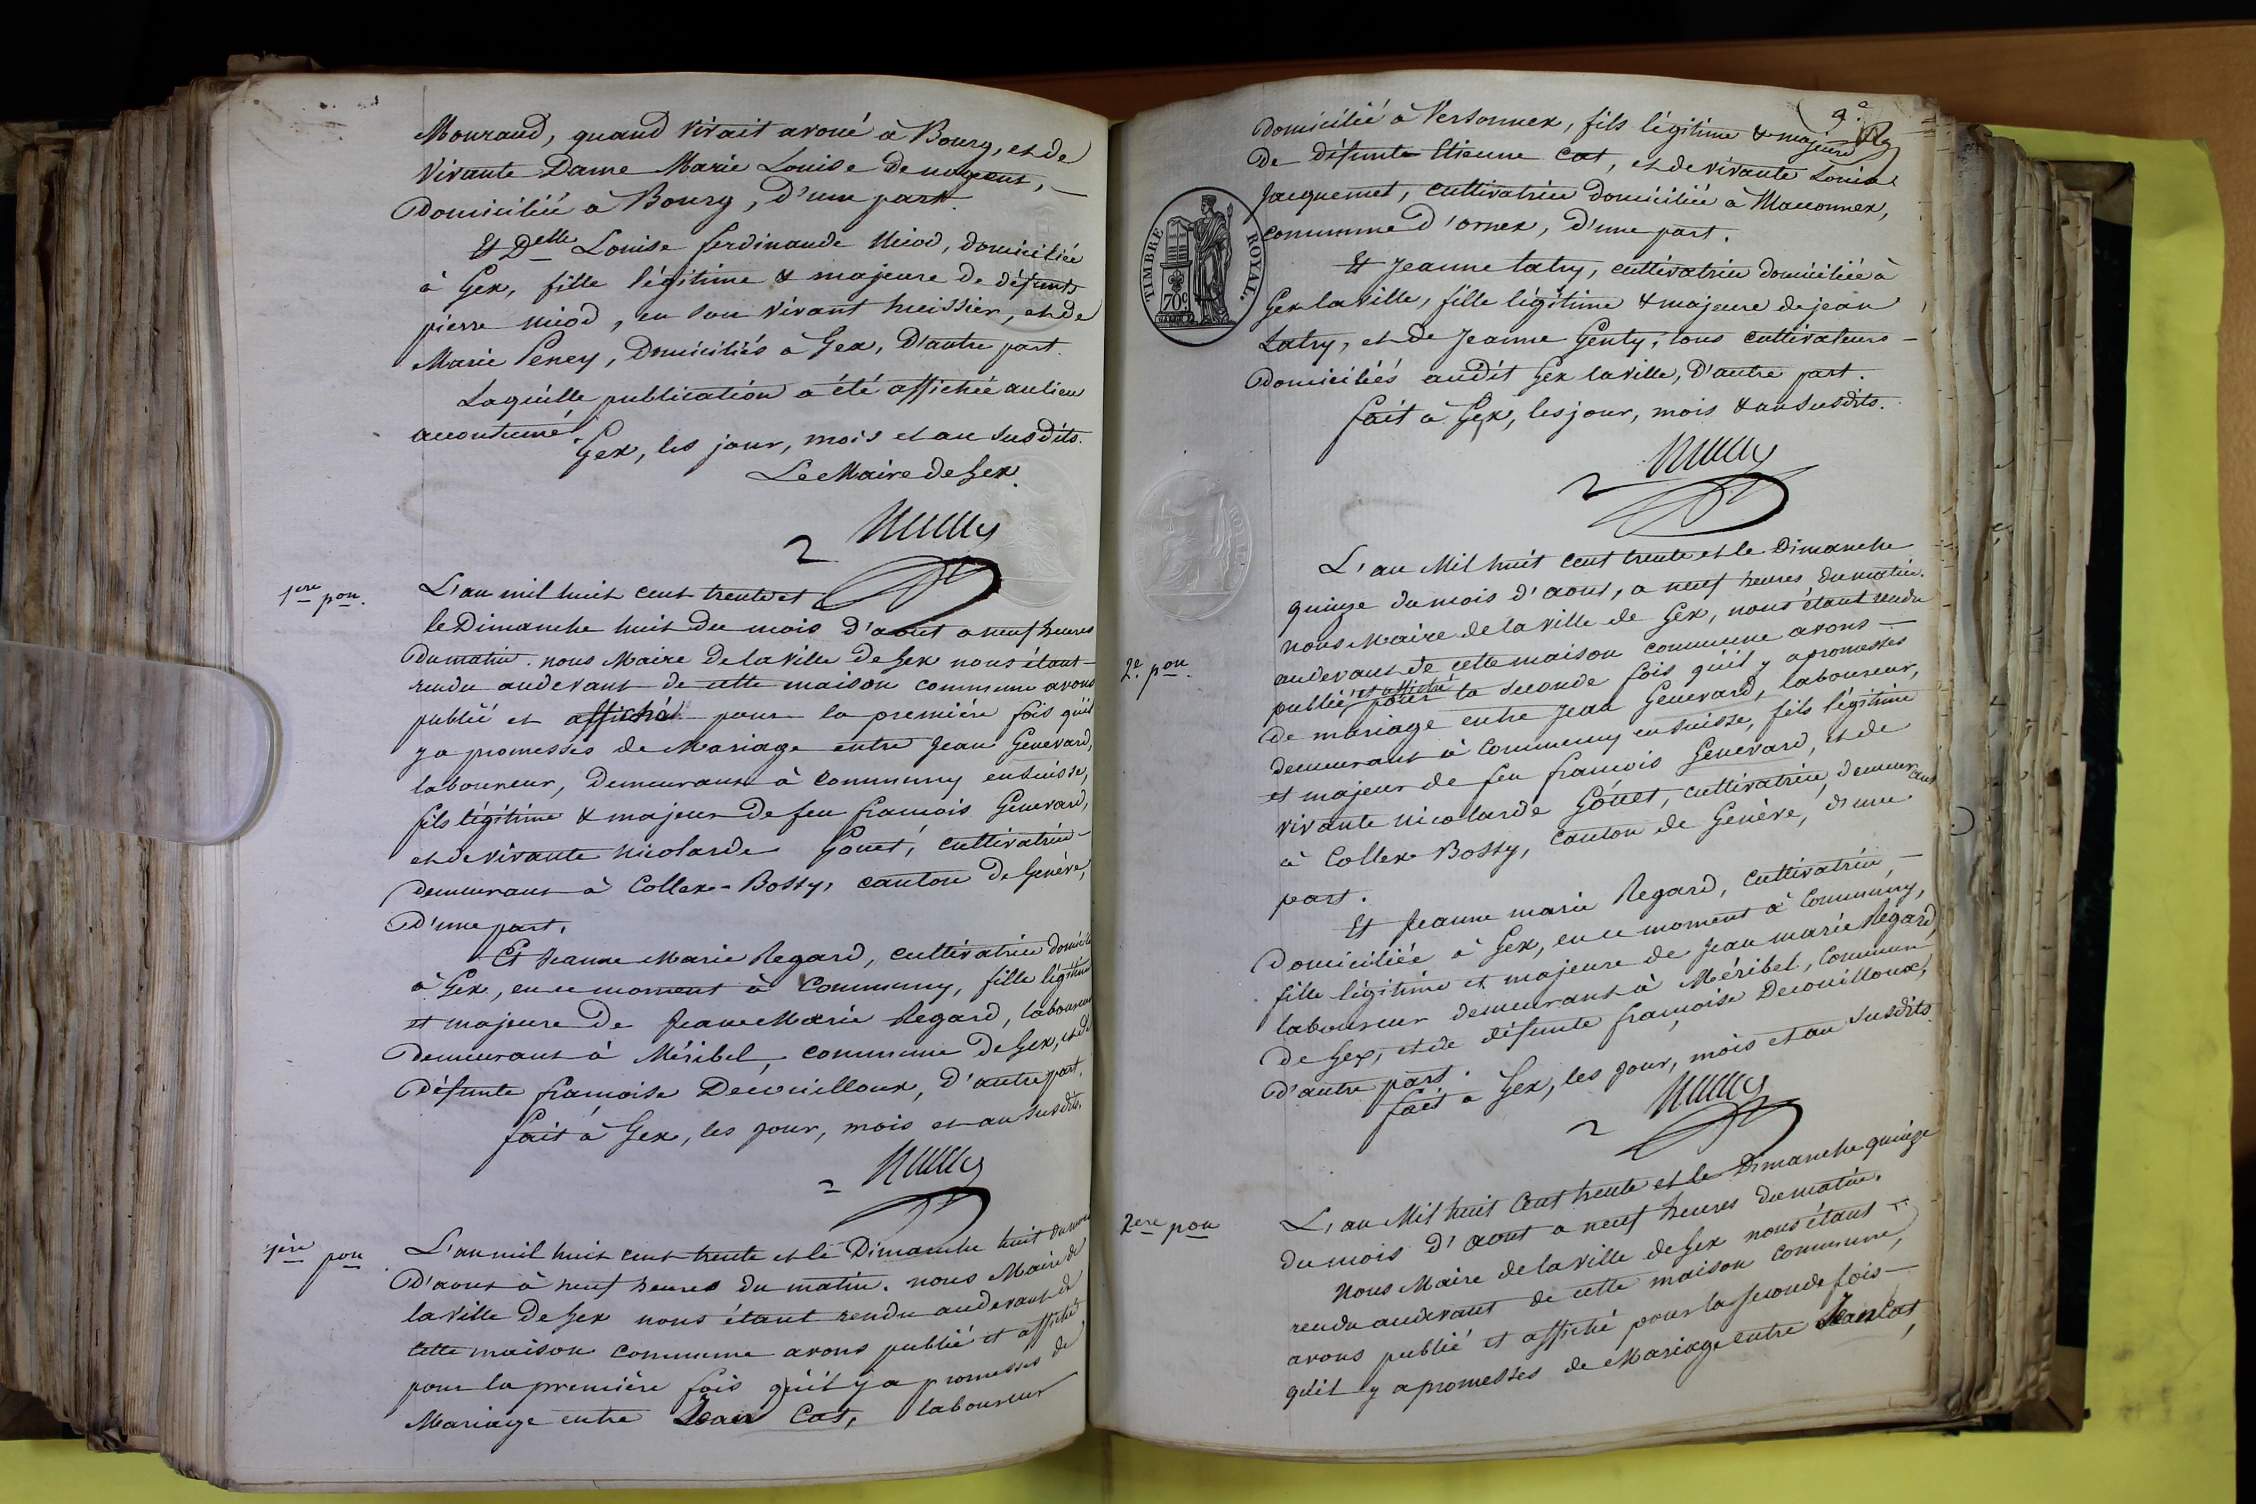 Mouraud, quand vivait avoué à Bourg, et de
vivante Dame Marie Louise Denogent,
Domiciliée à Bourg, D'une part.
Et Delle Louise ferdinande Nicod, domiciliée
à Gex, fille légitime & majeure de défunts
pierre Nicod, en son vivant huissier, et de
Marie Peney, Domiciliés à Gex, D'autre part.
Laquelle publication a été affichée au lieu
accoutumé.
Gex, les jour, mois et an susdits.
Le Maire de Gex.
1ere pon.
L'an mil huit cent trente et
le Dimanche huit du mois d'aout a neuf heures
du matin. nous Maire de la ville de Gex nous étant
rendu audevant de cette maison commune avons
publié et affiché pour la première fois qu'il
y a promesses de Mariage entre Jean Genevard,
laboureur, Demeurant à Commugny en Suisse,
fils légitime & majeur de feu françois Genevard,
et de vivante Nicolarde Gouet, cultivatrice
demeurant à Collex-Bossy, canton de Genève,
D'une part.
Et Jeanne Marie Regard, cultivatrice
à Gex, en ce moment à Commugny, fille légitime
et majeure de Jean Marie Regard, laboureur
Demeurant à Méribel, commune de Gex, et de
Défunte françoise Decouilloux, D'autre part.
fait à Gex, les jour, mois et an susdits.
1ère pon
L'an mil huit cent trente et le Dimanche huit du mois
D'aout à neuf heures du matin. nous Maire de
la ville de Gex nous étant rendu audevant de
cette maison commune avons publié et affiché
pour la première fois qu'il y a promesses de
Mariage entre Jean Cat, laboureur
9.e
domicilié à Versonnex, fils légitime & majeur
de défunte Etienne Cat, et de vivante Louise
Jacquemet, cultivatrice domiciliée à Maconnex,
commune d'ornex, d'une part.
TIMBRE ROYAL.
70c
Et Jeanne Latry, cultivatrice domiciliée à
Gex la ville, fille légitime & majeure de jean
Latry, et de Jeanne Genty, tous cultivateurs
Domiciliés audit Gex la ville, D'autre part.
fait à Gex, les jour, mois & an susdits.
L'an Mil huit cent trente et le Dimanche
quinze du mois d'aout, a neuf heures du matin.
nous Maire de la ville de Gex, nous étant rendu
audevant de cette maison commune avons
2.e pon.
et affiché
publié pour la seconde fois qu'il y a promesses
de mariage entre Jean Genevard, laboureur,
demeurant à Commugny en suisse, fils légitime
et majeur de feu françois Genevard, et de
vivante nicolarde Gouet, cultivatrice, demeurant
à Collex-Bossy, canton de Genève, d'une
part.
Et Jeanne marie Regard, cultivatrice,
Domiciliée à Gex, en ce moment à Commugny,
fille légitime et majeure de Jean marie Regard,
laboureur demeurant à Méribel, commune
de Gex, et de défunte françoise Decouilloux,
D'autre part.
fait à Gex, les jour, mois et an susdits
2ere pon
L'an Mil huit Cent trente et le Dimanche quinze
du mois D'aout a neuf heures du matin.
Nous Maire de la ville de Gex nous étant
rendu audevant de cette maison commune,
avons publié et affiché pour la seconde fois
qu'il y a promesses de Mariage entre Jean Cat,